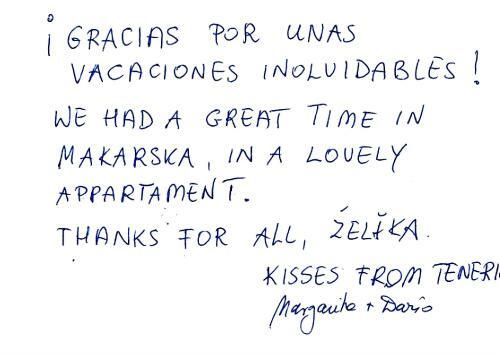 ¡GRACIAS POR UNAS
VACACIONES INOLVIDABLES!
WE HAD A GREAT TIME IN
MAKARSKA, IN A LOVELY
APPARTAMENT.
THANKS FOR ALL, ŽELJKA.
KISSES FROM TENERI
Margarita + Darío